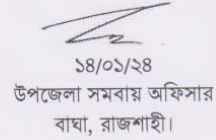 ১৪/০১/২৪
উপজেলা সমবায় অফিসার
বাঘা, রাজশাহী।